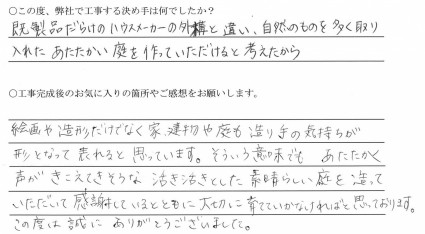 ○この度、弊社で工事する決め手は何でしたか?
既製品だらけのハウスメーカーの外構と違い、自然のものを多く取り
入れた あたたかい庭を作っていただけると考えたから
○工事完成後のお気に入りの箇所やご感想をお願いします。
絵画や造形だけでなく家、建物や庭も造り手の気持ちが
形となって表れると思っています。そういう意味でも あたたかく
声がきこえてきそうな 活き活きとした 素晴らしい庭を造って
いただいて感謝しているとともに大切に育てていかなければと思っております。
この度は誠にありがとうございました。